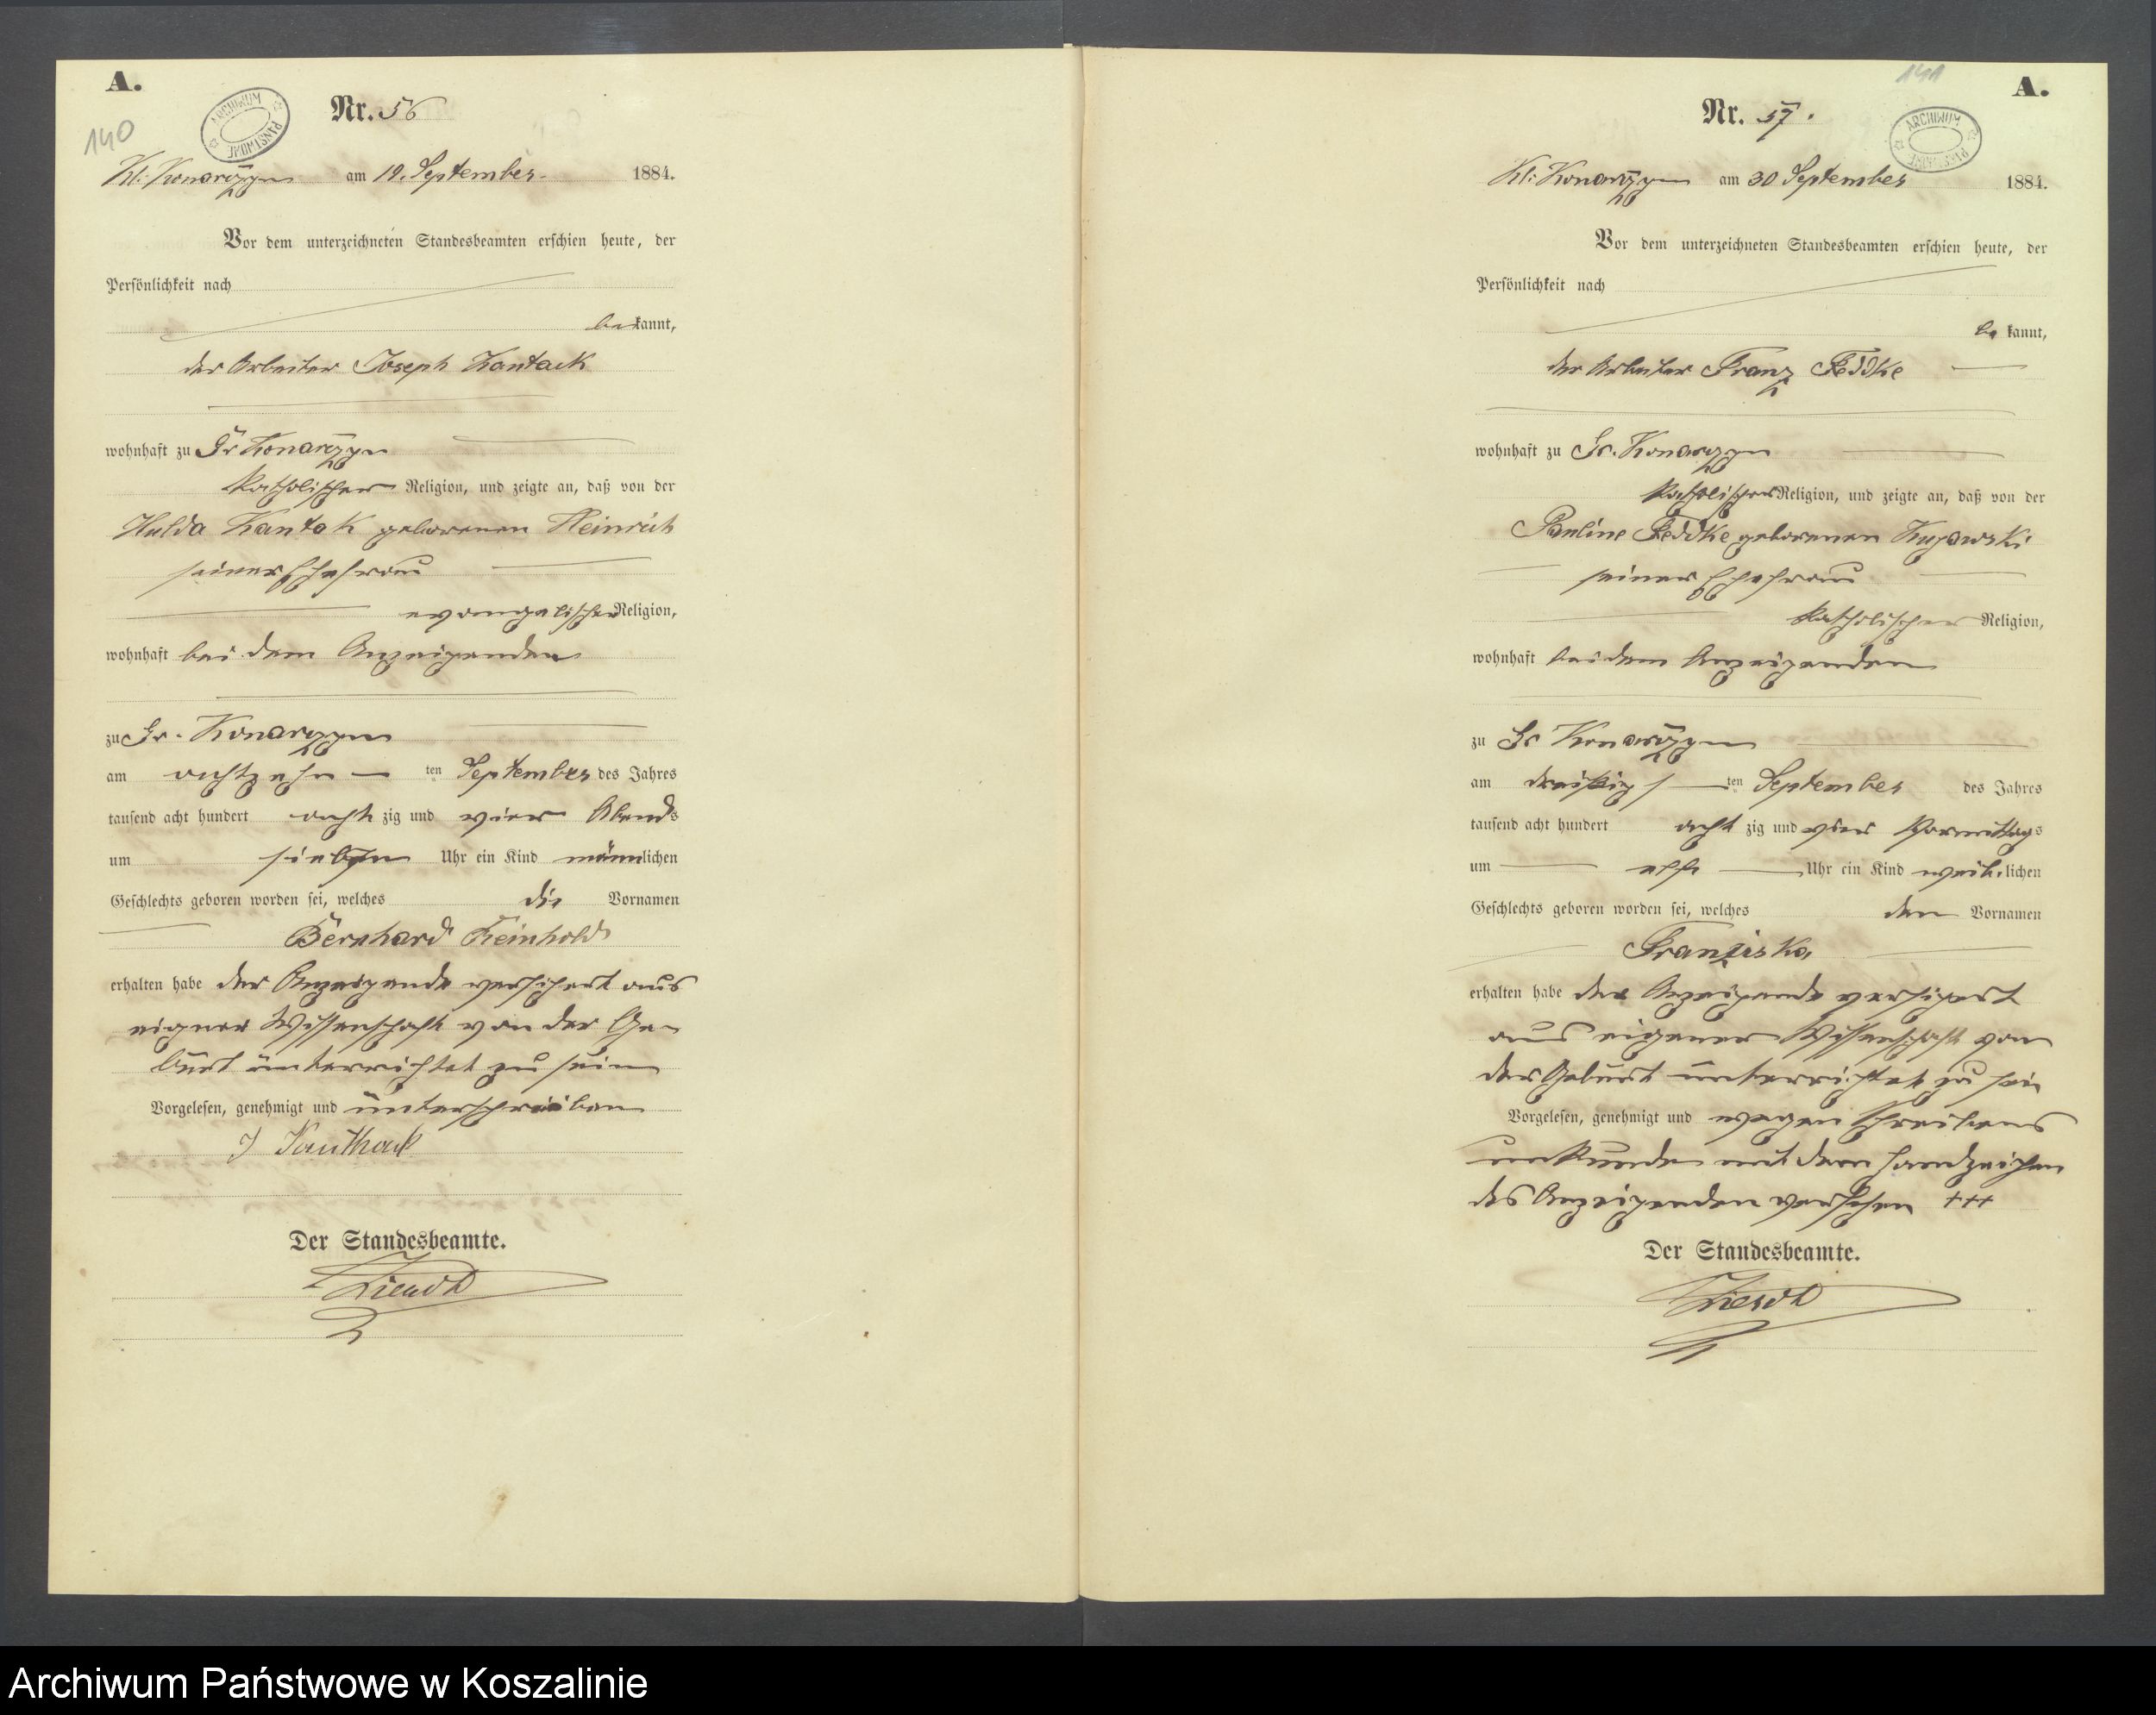 A.
140
ARCHIWUM PAŃSTWOWE
Nr. 56
Kl: Konarczyn am 19. September 1884.
Vor dem unterzeichneten Standesbeamten erschien heute, der
Persönlichkeit nach
bekannt,
der Arbeiter Joseph Kantack
wohnhaft zu Gr Konarczyn
katholischer Religion, und zeigte an, daß von der
Hulda Kantak geborenen Heinrich
seiner Ehefrau
evangelischer Religion,
wohnhaft bei dem Anzeigenden
zu Gr. Konarczyn
am achtzehn ten September des Jahres
tausend acht hundert acht zig und vier Abends
um sieben Uhr ein Kind männlichen
Geschlechts geboren worden sei, welches die Vornamen
Bernhard Reinhold
erhalten habe der Anzeigende versichert aus
eigner Wissenschaft von der Ge-
burt unterrichtet zu sein
Vorgelesen, genehmigt und unterschrieben
J Kanthack
Der Standesbeamte.
141
A.
ARCHIWUM PAŃSTWOWE
Nr. 57.
Kl: Konarczyn am 30 September 1884.
Vor dem unterzeichneten Standesbeamten erschien heute, der
Persönlichkeit nach
be kannt,
der Arbeiter Franz Feddke
wohnhaft zu Gr. Konarczyn
katholischer Religion, und zeigte an, daß von der
Pauline Feddke geborenen Kujawski
seiner Ehefrau
katholischer Religion,
wohnhaft bei dem Anzeigenden
zu Gr Konarczyn
am dreißig ten September des Jahres
tausend acht hundert acht zig und vier Vormittags
um elf Uhr ein Kind weib.lichen
Geschlechts geboren worden sei, welches den Vornamen
Franziska
erhalten habe der Anzeigende versichert
aus eigener Wissenschaft von
der Geburt unterrichtet zu sein
Vorgelesen, genehmigt und wegen Schreibens
unkunde mit dem Handzeichen
des Anzeigenden versehen +++
Der Standesbeamte.
Archiwum Państwowe w Koszalinie